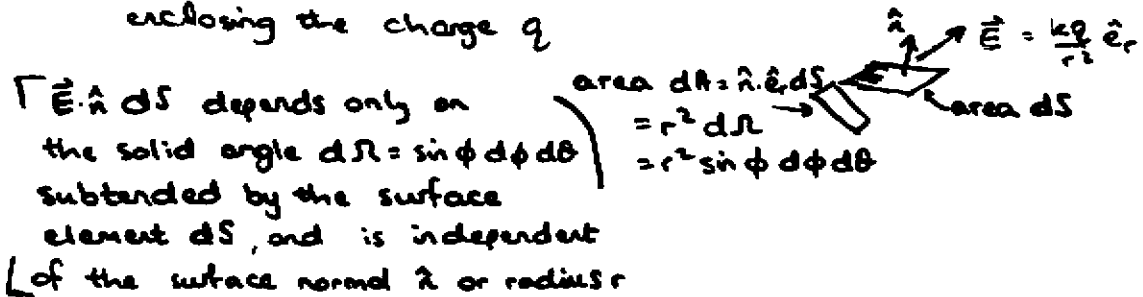 enclosing the charge q
n̂
E⃗ = kq/r² ê_r
E⃗·n̂ dS depends only on
the solid angle dΩ = sin φ dφ dθ
subtended by the surface
element dS, and is independent
of the surface normal n̂ or radius r
area dA = n̂·ê_r dS
= r² dΩ
= r² sin φ dφ dθ
area dS